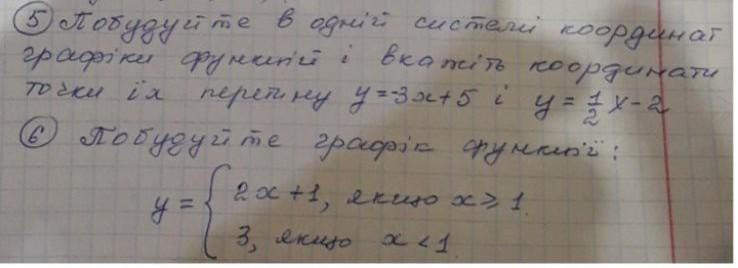 5 Побудуйте в одній системі координат
графіки функцій і вкажіть координати
точки їх перетину y=-3x+5 і y=1/2x-2
6 Побудуйте графік функції:
y={ 2x+1, якщо x≥1
3, якщо x<1